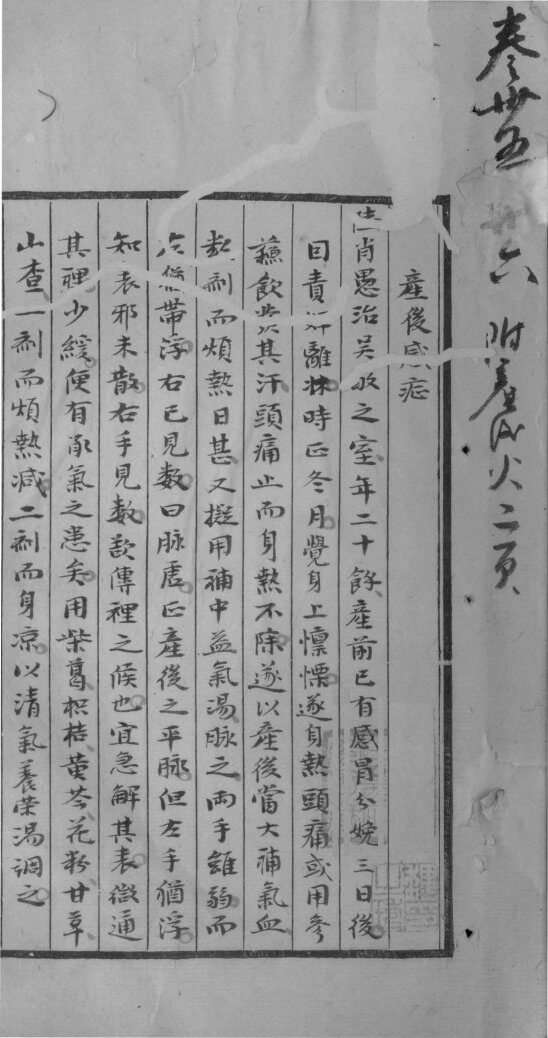 卷卅五 卅六 附產後火二頁
產後感症
肖愚治吳收之室年二十餘產前已有感冒分娩三日後
因責離牀時正冬月覺身上懍慄遂身熱頭痛或用參
蘇飲其汗頭痛止而身熱不除遂以產後當大補氣血
數劑而煩熱日甚又擬用補中益氣湯脉之兩手雖弱而
左猶帶浮右已見數曰脉虛正產後之平脉但左手猶浮
知表邪未散右手見數欲傳裡之候也宜急解其表微通
其裡少緩便有承氣之患矣用柴葛枳桔黃芩花粉甘草
山查一劑而煩熱減二劑而身凉以清氣養榮湯調之